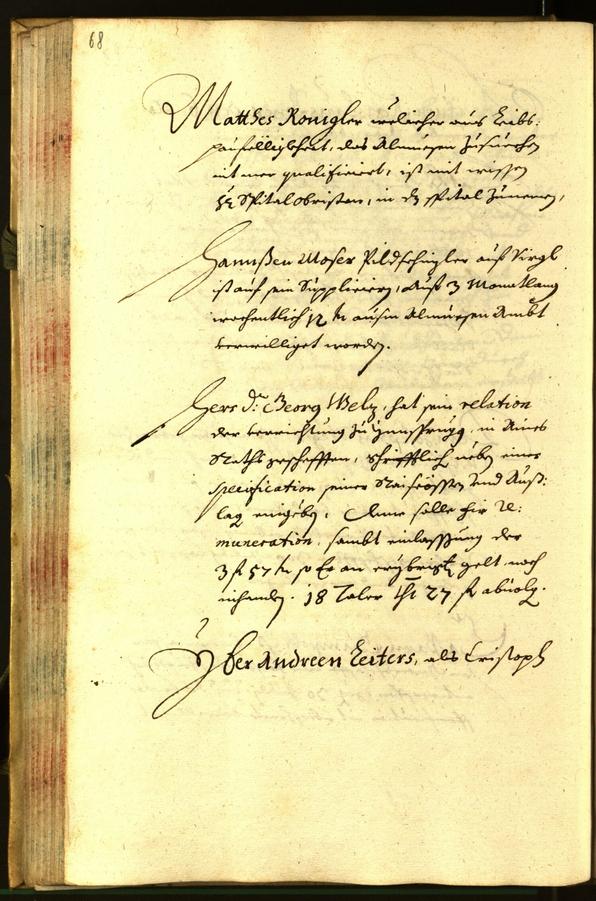 68
Matthes Konigler welicher aus Leibs:
paufelligkheit, das Almuesen zusuechen
nit mer qualificiert, ist mit wissen
Spitalobristen, in dz spital zunemen,
Hannßen Moser Pildschnizler auf Virgl
ist auf sein Suppliciern, auf 3 Monatlang
wochentlich 12 kr ausm Almuesen Ambt
verwilliget worden.
Herr Dr. Georg Welz, hat sein relation
der verrichtung zu Ynnsprugg, in Aines
Raths gescheften, schrifftlich neben einer
specification seiner Raißcössten und Auß:
lag eingeben, Deme solle für Re:
muneration, sambt einlassung der
3 fl 57 kr so Er an gelt noch
inhanden. 18 Taler tht 27 fl abvolg.
Yber Andreen Leiters, als Cristoph